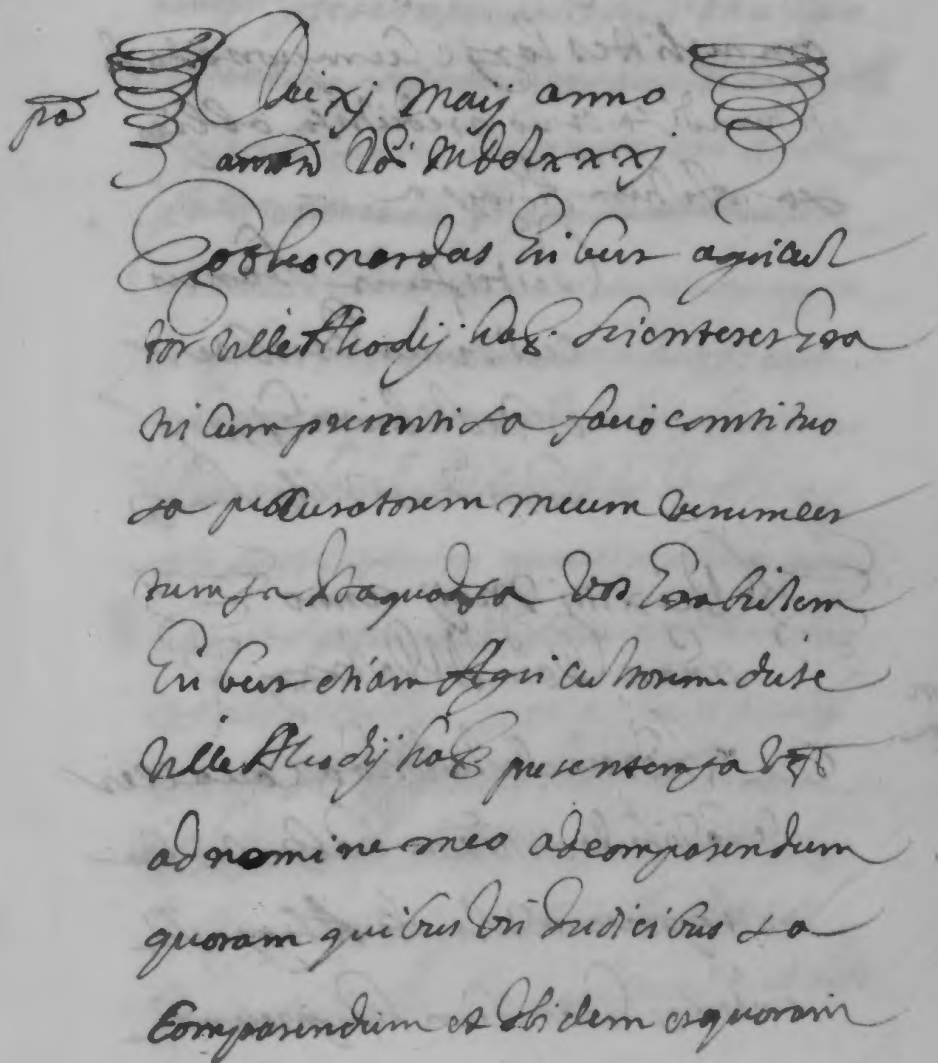 po
Die xj Maij anno
anno Dni MDclxxxj
Leonardus agricul
tor ville hab. scienter et gra
tis cum presenti &a facio constituo
&a procuratorem meum verum cer
tum &a Itaquod &a vos
etiam Agricultorem dicte
ville hab presentem &a
ad nomine meo ad comparendum
quoram quibus vis Iudicibus &a
Comparendum et Ibidem et quoram